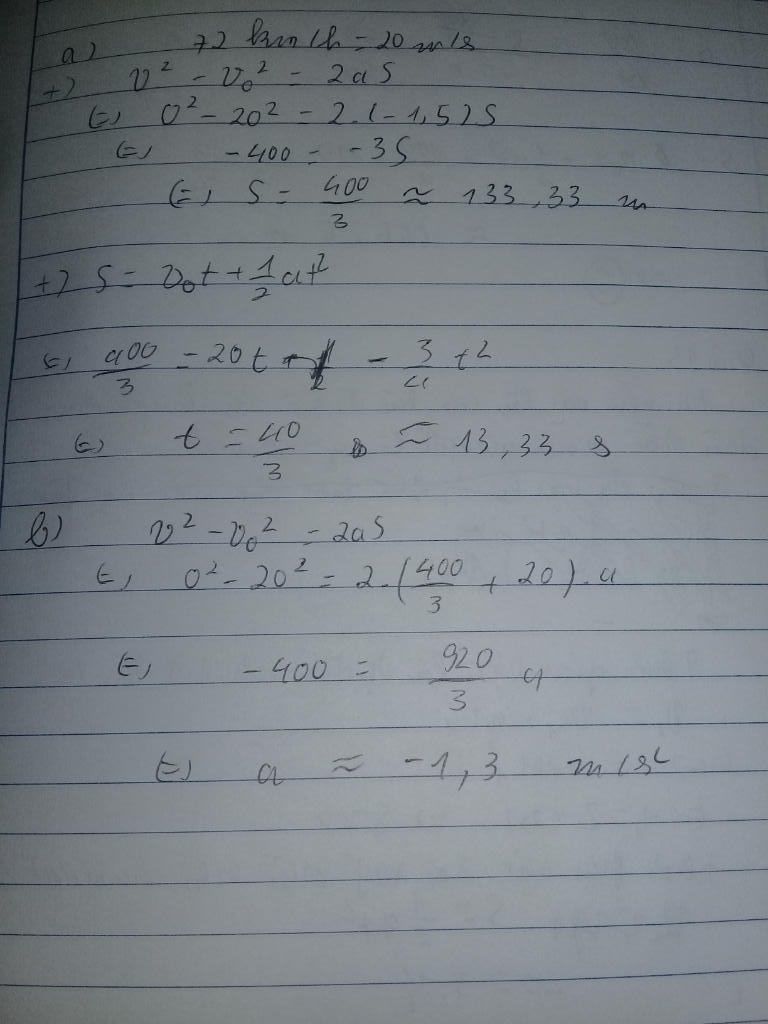 a) 72 km/h = 20 m/s
+) v² - v₀² = 2aS
(=) 0² - 20² = 2.(-1,5)S
(=) -400 = -3S
(=) S = 400/3 ≈ 133,33 m
+) S = v₀t + 1/2 at²
(=) 400/3 = 20t - 3/4 t²
(=) t = 40/3 ≈ 13,33 s
b) v² - v₀² = 2aS
(=) 0² - 20² = 2.(400/3 + 20).a
(=) -400 = 920/3 a
(=) a ≈ -1,3 m/s²